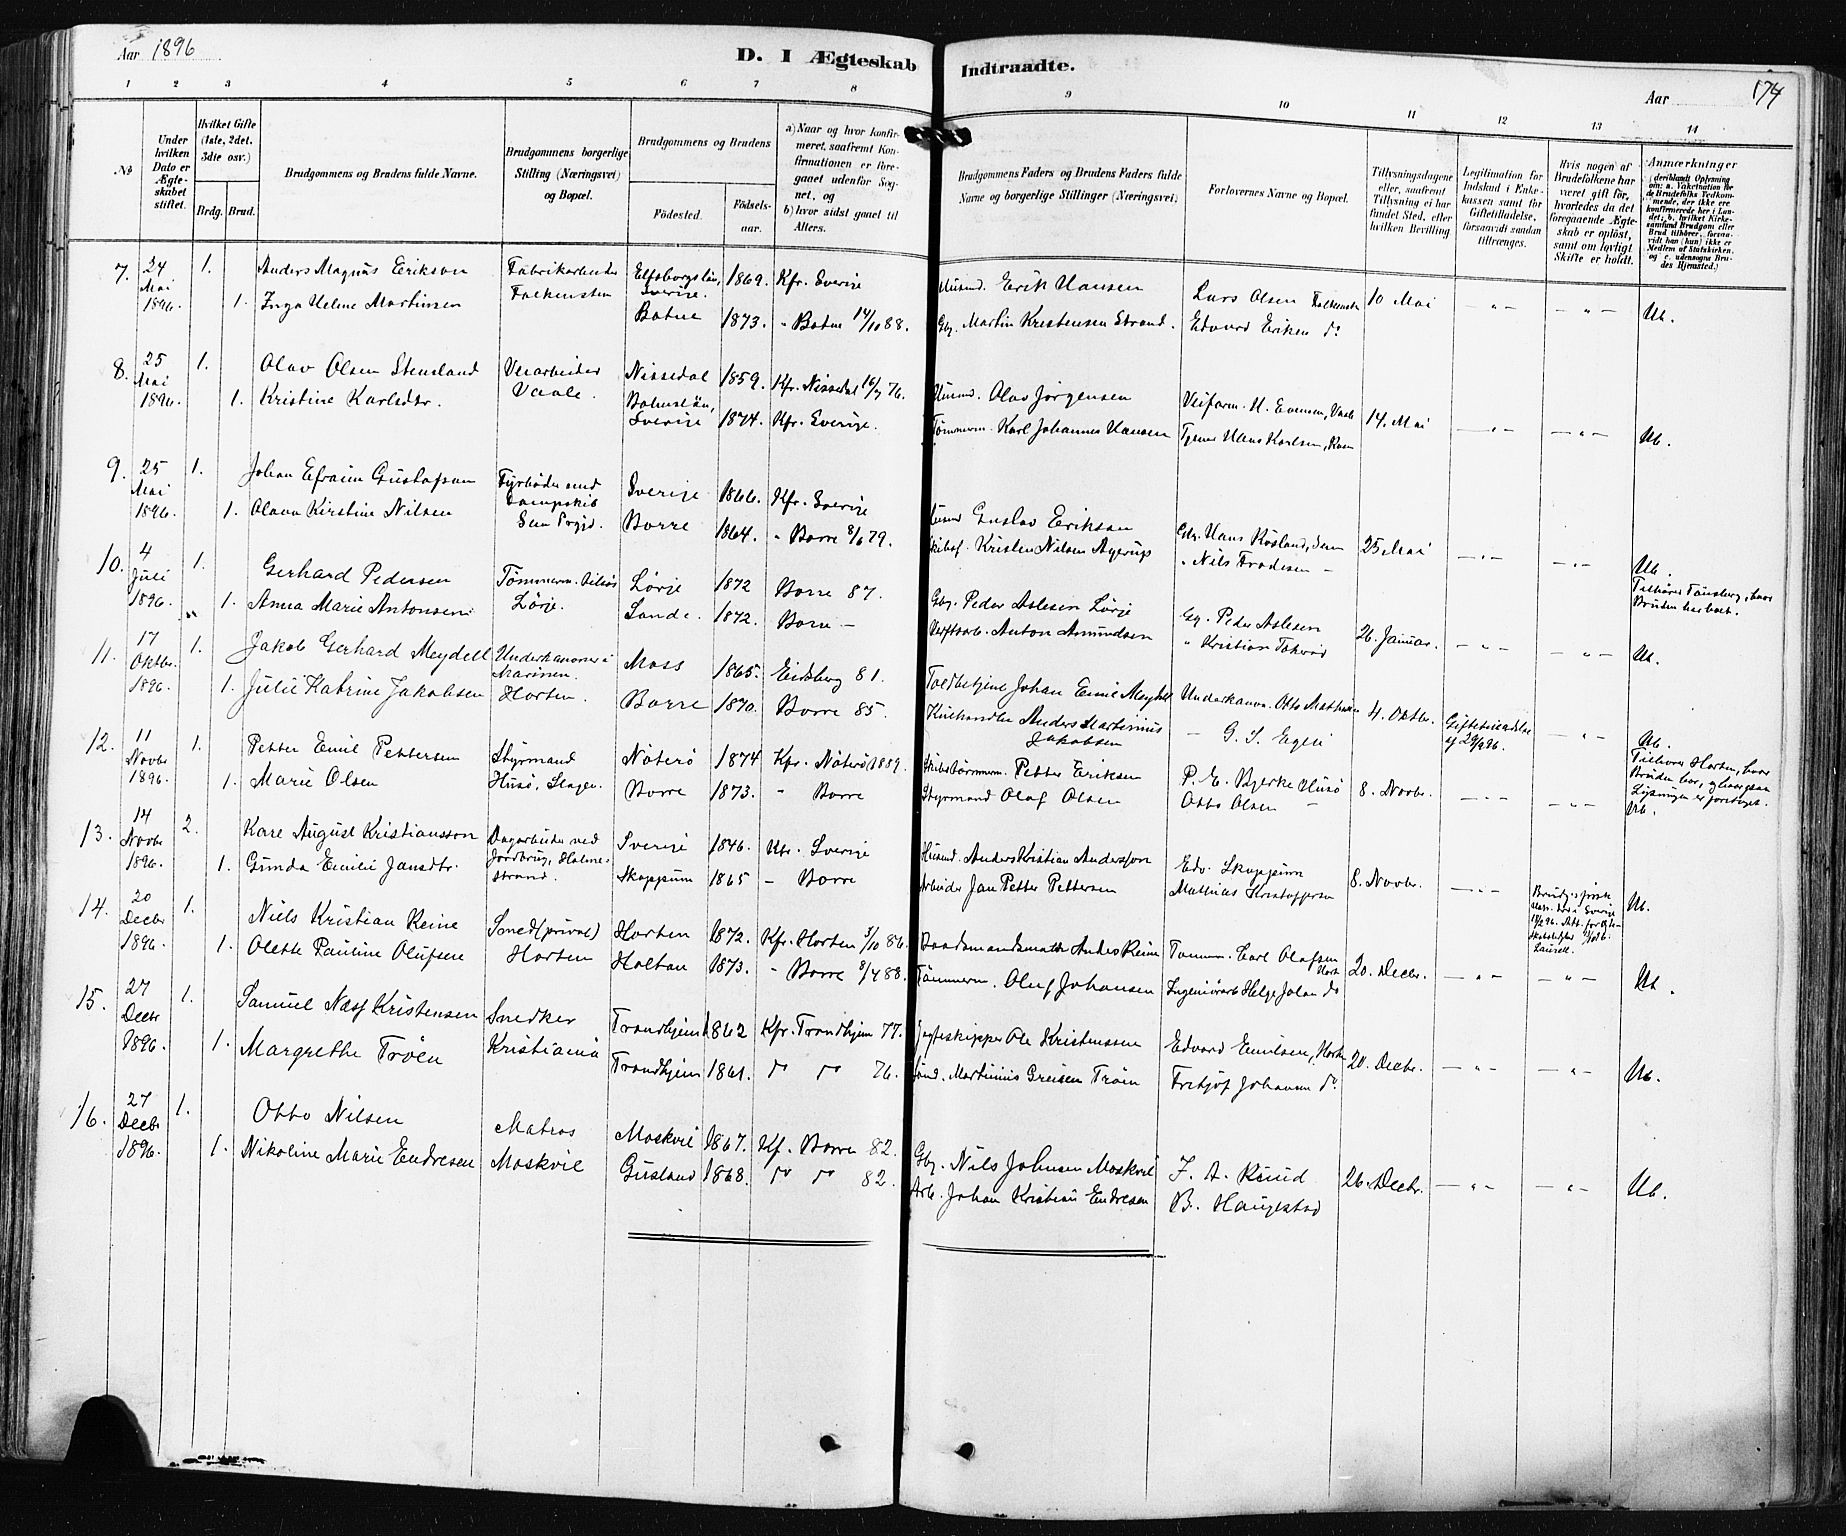 Aar 1896
D. I Ægteskab Indtraadte.
Aar 174
1 2 3 4 5 6 7 8 9 10 11 12 13 14
No
Under hvilken Dato er Ægteskabet stiftet.
Hvilket Gifte (1ste, 2det, 3die osv.)
Brdg. Brud.
Brudgommens og Brudens fulde Navne.
Brudgommens borgerlige Stilling (Næringsvei) og Bopæl.
Brudgommens og Brudens
Fødested.
Fødselsaar.
a) Naar og hvor konfirmeret, saafremt Konfirmationen er foregaaet udenfor Sognet, og
b) hvor sidst gaaet til Alters.
Brudgommens Faders og Brudens Faders fulde Navne og borgerlige Stillinger (Næringsvei)
Forlovernes Navne og Bopæl.
Tillysningsdagene eller, saafremt Tillysning ei har fundet Sted, efter hvilken Bevilling
Legitimation for Indskud i Enkekassen samt for Giftetilladelse, forsaavidt saadan tiltrænges.
Hvis nogen af Brudefolkene har været gift før, hvorledes da det foregaaende Ægteskab er opløst, samt om lovligt Skifte er holdt.
Anmærkninger (deriblandt Oplysning om: a. Vakcination for de Brudefolks Vedkommende, der ikke ere konfirmerede her i Landet; b. hvilket Kirkesamfund Brudgom eller Brud tilhører, forsaavidt han (hun) ikke er Medlem af Statskirken, og c. udensogns Brudes Hjemsted.)
7. 24 Mai 1896. 1. Anders Magnus Erikson Fabrikarbeider Elfsborgslän, Sverige. 1869. Kfr. Sverige Husmd. Erik Hansen Lars Olsen Falkensten 10 Mai — " — — " — Ub.
1. Inga Helene Martinsen Falkensten Botne 1873. " Botne 14/10 88. Gbr. Martin Kristensen Strand. Edvard Eriksen do
8. 25 Mai 1896. 1. Olav Olsen Stensland Veiarbeider Nissedal 1859. Kfr. Nissedal 16/7 76. Husmd. Olav Jörgensen Veiform. H. Evensen, Vaale 14. Mai — " — — " — Ub.
1. Kristine Karlsdtr. Vaale. Bohuslän, Sverige 1874. Kfr. Sverige. Tømmerm. Karl Johannes Hansen Hans Karlsen
9. 25 Mai 1896. 1. Johan Efraim Gustafson Fyrbøder med Dampskib Sverige 1866. Kfr. Sverige Gustav Erikson Gbr. Hans Røsland, Sem 25 Mai — " — — " — Ub.
1. Olava Kirstine Nilsen Sem Borre 1864. " Borre 8/6 79. Kristen Nilsen Agerup " Nils Frodesen — Tilhører Tønsberg, hvor Bruden har boet.
10. 4 Juli 1896. 1. Gerhard Pedersen Tømmerm. Lørje 1872 Borre 87. Gbr. Peder Aslesen Lörje Gbr. Peder Aslesen 26. Januar. — " — — " — Ub.
1. Anna Marie Antonsen Lörje. Sande 1872. Borre — Verftsarb. Anton Amundsen " Kristian Takerød
11. 17 Oktbr. 1896. 1. Jakob Gerhard Meydell Underkanoner i Marinen. Moss 1865. Eidsberg 81. Toldbetjent Johan Emil Meydell Underkanon. Otto Mathisen 4. Oktbr. Giftetilladelse af 29/9 96. — " — Ub.
1. Julie Katrine Jakobsen Horten. Borre 1870. Borre 85. Kulhandler Anders Martinius Jakobsen — G. S. Tilhører Horten, hvor Bruden bor, og hvorfra Lysningen er foretaget.
12. 11 Novbr 1896. 1. Petter Emil Pettersen Styrmand Nøterø 1874 Kfr. Nøterø 1889. Skibstømmerm. Petter Eriksen P. E. Bjerke Husø 8. Novbr. — " — — " — Ub.
1. Marie Olsen Husø, Slagen Borre 1873. " Borre Styrmand Olaf Olsen Otto Olsen —
13. 14 Novbr 1896. 2. Karl August Kristiansson Dagarbeider ved Jordbrug, Holmestrand. Sverige 1846. Ufr. Sverige Husmd. Anders Kristian Andersson Edv. Skoppum 8. Novbr. — " — Ub.
1. Gunda Emilie Jansdtr. Skoppum 1865 — Borre Arbeider Jan Petter Pettersen Mathias Kristoffersen
14. 20 Decbr 1896. 1. Niels Kristian Reine Smed (privat) Horten 1872. Kfr. Horten 3/10 86. Baadsmandsmath Anders Reine Tømm. Carl Olafsen Hort. 20. Decbr. — " — — " — Ub.
1. Olette Pauline Olufsen Horten Holtan 1873. " Borre 8/4 88. Tömmerm. Oluf Johansen Ingeniørarb Helge Jolan do
15. 27 Decbr 1896. 1. Samuel Næss Kristensen Snedker Trondhjem 1862 Kfr. Trondhjem 77. Jagteskipper Ole Kristenssen Edvard Emilsen, Horten 20. Decbr. — " — — " — Ub.
1. Margrethe Trøen Kristiania Trondhjem 1861. do do 76. Martinius Greisen Trøen Fritjof Johansen do
16. 27 Decbr 1896. 1. Otto Nilsen Matros Moskvil 1867. Kf. Borre 82. Gbr. Nils Johnsen Moskvil F. A. Knud 26. Decbr. — " — — " — Ub.
1. Nikoline Marie Endresen Moskvil Gusland 1868. do do 82. Arb. Johan Kristian Endresen B. Haugestad